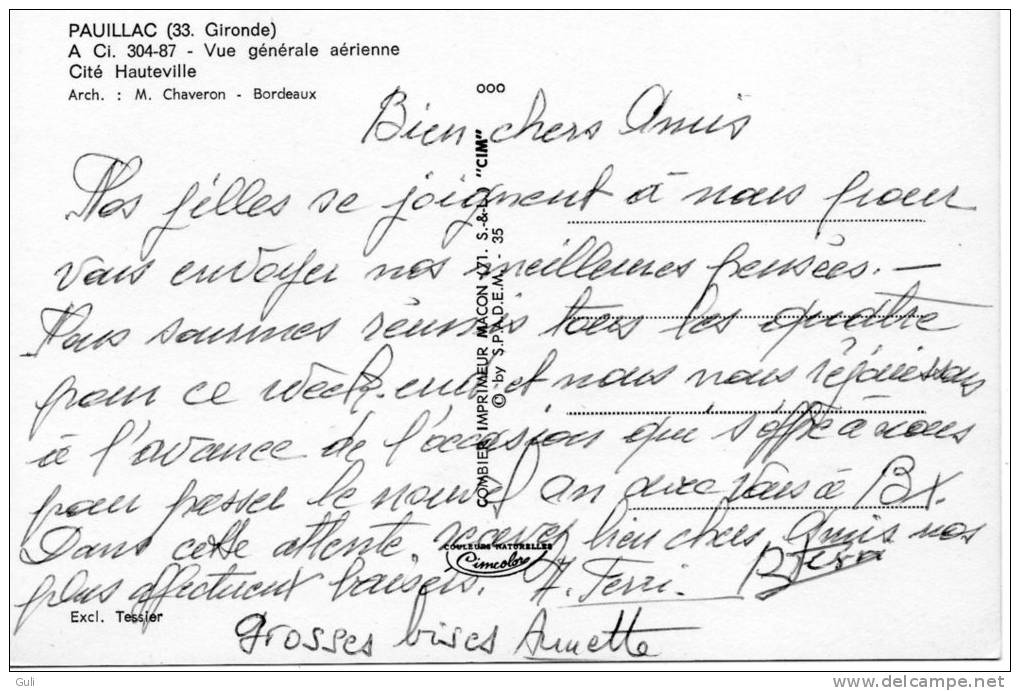 PAUILLAC (33. Gironde)
A Ci. 304-87 - Vue générale aérienne
Cité Hauteville
Arch. : M. Chaveron - Bordeaux
ooo
COMBIER IMPRIMEUR MACON (71. S.-&-L.) "CIM"
© by S.P.A.D.E.M. - 35
Bien chers Amis
Nos filles se joignent à nous pour
vous envoyer nos meilleures pensées. -
Nous sommes réunis tous les quatre
pour ce week-end et nous nous réjouissons
à l'avance de l'occasion qui s'offre à nous
pour passer le nouvel an avec vous à BX.
Dans cette attente, recevez bien chers Amis nos
plus affectueux baisers.
COULEURS NATURELLES
Cimcolor
Excl. Tessier
Grosses bises Annette
Guli
delcampe.net